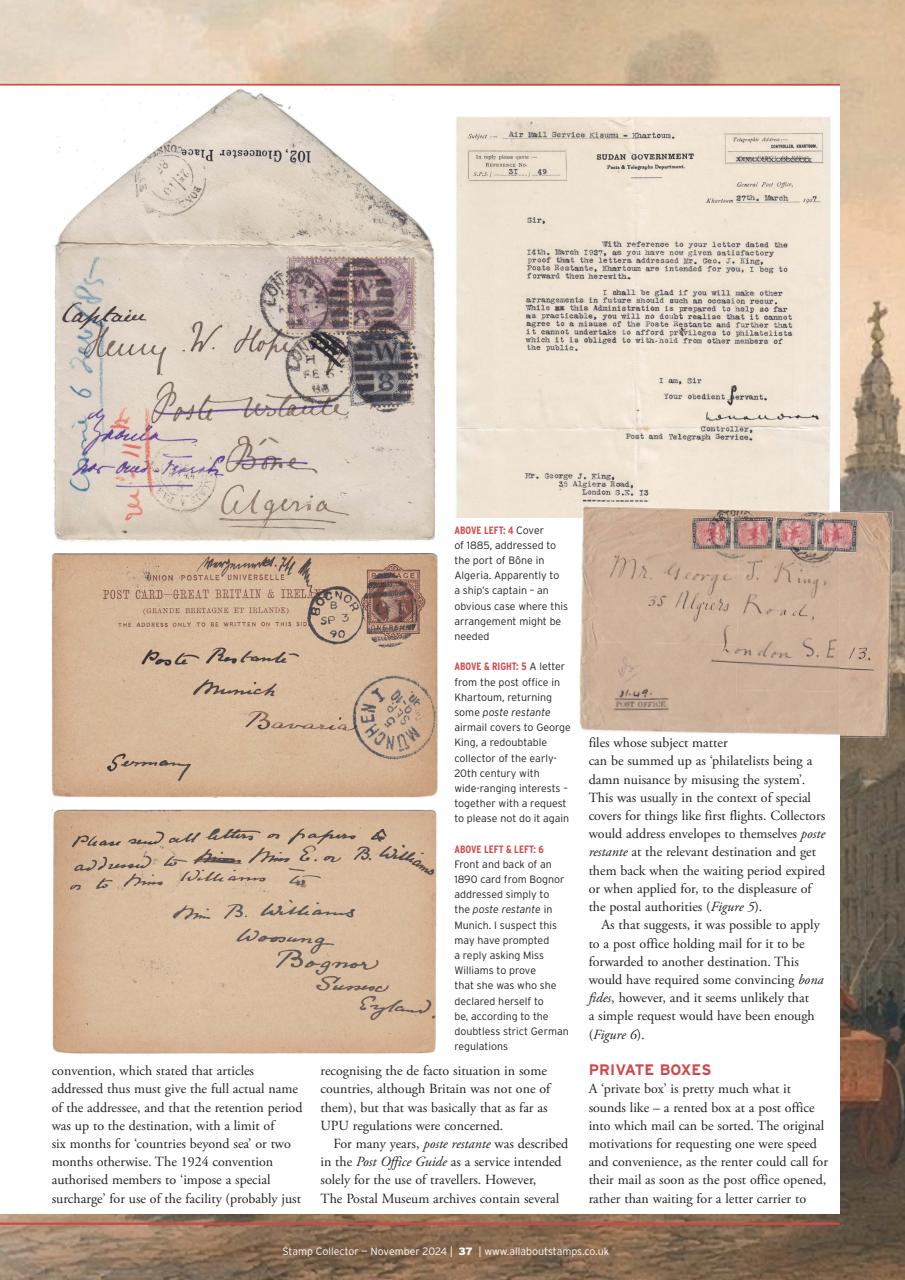 102, Gloucester Place.
LONDON W
W
8
LONDON W
FE 6
W
8
Captain
Henry W. Hope
Poste Restante
Bône
Algeria
Subject :— Air Mail Service Kisumu - Khartoum.
In reply please quote—
Reference No.
S.P.S./ 31 / 49
SUDAN GOVERNMENT
Posts & Telegraphs Department.
Telegraphic Address:—
CONTROLLER, KHARTOUM.
General Post Office,
Khartoum 27th. March 1927
Sir,
With reference to your letter dated the
14th. March 1927, as you have now given satisfactory
proof that the letters addressed Mr. Geo. J. King,
Poste Restante, Khartoum are intended for you, I beg to
forward them herewith.
I shall be glad if you will make other
arrangements in future should such an occasion recur.
While as this Administration is prepared to help so far
as practicable, you will no doubt realise that it cannot
agree to a misuse of the Poste Restante and further that
it cannot undertake to afford privileges to philatelists
which it is obliged to with-hold from other members of
the public.
I am, Sir
Your obedient Servant.
Controller,
Post and Telegraph Service.
Mr. George J. King,
35 Algiers Road,
London S.E. 13
Mr. George J. King,
35 Algiers Road,
London S.E 13.
31.49.
POST OFFICE
UNION POSTALE UNIVERSELLE
POST CARD—GREAT BRITAIN & IRELAND
(GRANDE BRETAGNE ET IRLANDE)
THE ADDRESS ONLY TO BE WRITTEN ON THIS SIDE
BOGNOR
B
SP 3
90
POSTAGE
ONE PENNY
Poste Restante
Munich
Bavaria
Germany
MÜNCHEN I
Please send all letters or papers
addressed to Miss E. or B. Williams
or to Miss Williams to
Miss B. Williams
Woosung
Bognor
Sussex
England.
ABOVE LEFT: 4 Cover
of 1885, addressed to
the port of Bône in
Algeria. Apparently to
a ship's captain – an
obvious case where this
arrangement might be
needed
ABOVE & RIGHT: 5 A letter
from the post office in
Khartoum, returning
some poste restante
airmail covers to George
King, a redoubtable
collector of the early-
20th century with
wide-ranging interests –
together with a request
to please not do it again
ABOVE LEFT & LEFT: 6
Front and back of an
1890 card from Bognor
addressed simply to
the poste restante in
Munich. I suspect this
may have prompted
a reply asking Miss
Williams to prove
that she was who she
declared herself to
be, according to the
doubtless strict German
regulations
convention, which stated that articles
addressed thus must give the full actual name
of the addressee, and that the retention period
was up to the destination, with a limit of
six months for ‘countries beyond sea’ or two
months otherwise. The 1924 convention
authorised members to ‘impose a special
surcharge’ for use of the facility (probably just
recognising the de facto situation in some
countries, although Britain was not one of
them), but that was basically that as far as
UPU regulations were concerned.
For many years, poste restante was described
in the Post Office Guide as a service intended
solely for the use of travellers. However,
The Postal Museum archives contain several
files whose subject matter
can be summed up as ‘philatelists being a
damn nuisance by misusing the system’.
This was usually in the context of special
covers for things like first flights. Collectors
would address envelopes to themselves poste
restante at the relevant destination and get
them back when the waiting period expired
or when applied for, to the displeasure of
the postal authorities (Figure 5).
As that suggests, it was possible to apply
to a post office holding mail for it to be
forwarded to another destination. This
would have required some convincing bona
fides, however, and it seems unlikely that
a simple request would have been enough
(Figure 6).
PRIVATE BOXES
A ‘private box’ is pretty much what it
sounds like – a rented box at a post office
into which mail can be sorted. The original
motivations for requesting one were speed
and convenience, as the renter could call for
their mail as soon as the post office opened,
rather than waiting for a letter carrier to
Stamp Collector – November 2024 | 37 | www.allaboutstamps.co.uk